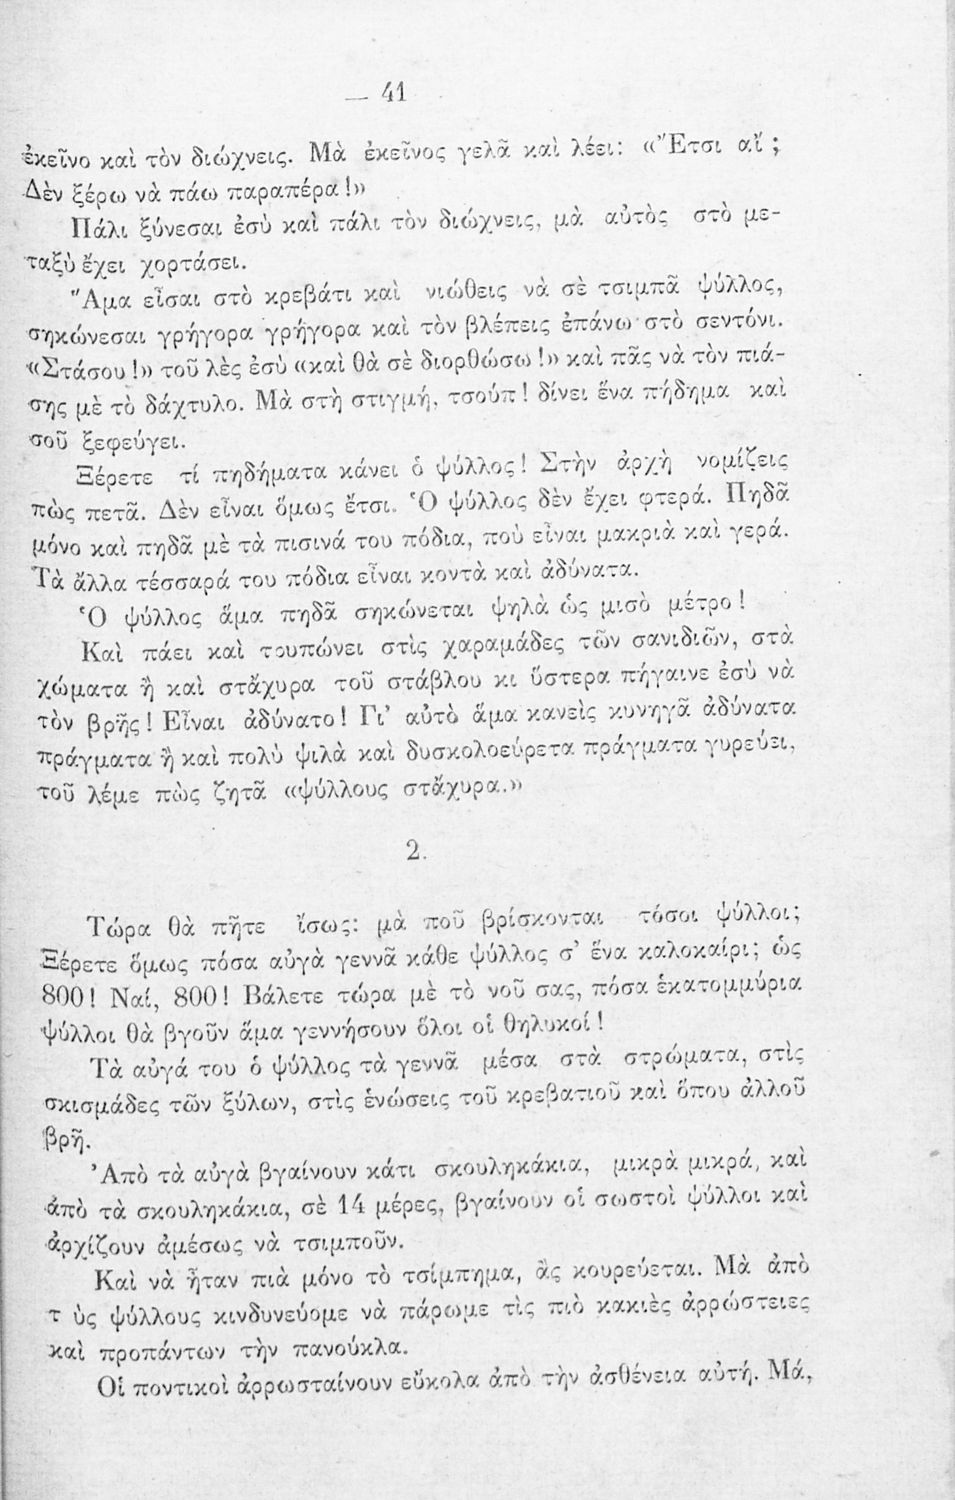 — 41
ἐκεῖνο καὶ τὸν διώχνεις. Μὰ ἐκεῖνος γελᾶ καὶ λέει: «Ἔτσι αἴ ;
Δὲν ξέρω νὰ πάω παραπέρα!»
Πάλι ξύνεσαι ἐσὺ καὶ πάλι τὸν διώχνεις, μὰ αὐτὸς στὸ με-
ταξὺ ἔχει χορτάσει.
Ἅμα εἶσαι στὸ κρεβάτι καὶ νιώθεις νὰ σὲ τσιμπᾶ ψύλλος,
σηκώνεσαι γρήγορα γρήγορα καὶ τὸν βλέπεις ἐπάνω στὸ σεντόνι.
«Στάσου!» τοῦ λὲς ἐσὺ «καὶ θὰ σὲ διορθώσω!» καὶ πᾶς νὰ τὸν πιά-
σης μὲ τὸ δάχτυλο. Μὰ στὴ στιγμή, τσούπ! δίνει ἕνα πήδημα καὶ
σοῦ ξεφεύγει.
Ξέρετε τί πηδήματα κάνει ὁ ψύλλος! Στὴν ἀρχὴ νομίζεις
πὼς πετᾶ. Δὲν εἶναι ὅμως ἔτσι. Ὁ ψύλλος δὲν ἔχει φτερά. Πηδᾶ
μόνο καὶ πηδᾶ μὲ τὰ πισινά του πόδια, ποὺ εἶναι μακριὰ καὶ γερά.
Τὰ ἄλλα τέσσαρά του πόδια εἶναι κοντὰ καὶ ἀδύνατα.
Ὁ ψύλλος ἅμα πηδᾶ σηκώνεται ψηλὰ ὡς μισὸ μέτρο!
Καὶ πάει καὶ τρυπώνει στὶς χαραμάδες τῶν σανιδιῶν, στὰ
χώματα ἢ καὶ στἄχυρα τοῦ στάβλου κι ὕστερα πήγαινε ἐσὺ νὰ
τὸν βρῇς! Εἶναι ἀδύνατο! Γι' αὐτὸ ἅμα κανεὶς κυνηγᾶ ἀδύνατα
πράγματα ἢ καὶ πολὺ ψιλὰ καὶ δυσκολοεύρετα πράγματα γυρεύει,
τοῦ λέμε πὼς ζητᾶ «ψύλλους στἄχυρα.»
2.
Τώρα θὰ πῆτε ἴσως: μὰ ποῦ βρίσκονται τόσοι ψύλλοι;
Ξέρετε ὅμως πόσα αὐγὰ γεννᾶ κάθε ψύλλος σ' ἕνα καλοκαίρι; ὡς
800! Ναί, 800! Βάλετε τώρα μὲ τὸ νοῦ σας, πόσα ἑκατομμύρια
ψύλλοι θὰ βγοῦν ἅμα γεννήσουν ὅλοι οἱ θηλυκοί!
Τὰ αὐγά του ὁ ψύλλος τὰ γεννᾶ μέσα στὰ στρώματα, στὶς
σκισμάδες τῶν ξύλων, στὶς ἑνώσεις τοῦ κρεβατιοῦ καὶ ὅπου ἀλλοῦ
βρῆ.
Ἀπὸ τὰ αὐγὰ βγαίνουν κάτι σκουληκάκια, μικρὰ μικρά, καὶ
ἀπὸ τὰ σκουληκάκια, σὲ 14 μέρες, βγαίνουν οἱ σωστοὶ ψύλλοι καὶ
ἀρχίζουν ἀμέσως νὰ τσιμποῦν.
Καὶ νὰ ἦταν πιὰ μόνο τὸ τσίμπημα, ἂς κουρεύεται. Μὰ ἀπὸ
τ ὺς ψύλλους κινδυνεύομε νὰ πάρωμε τὶς πιὸ κακιὲς ἀρρώστειες
καὶ προπάντων τὴν πανούκλα.
Οἱ ποντικοὶ ἀρρωσταίνουν εὔκολα ἀπὸ τὴν ἀσθένεια αὐτή. Μά,